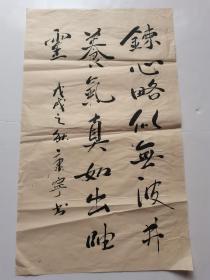 鍊心略似無波井
養氣真如出岫
雲
戊戌之秋康寧书